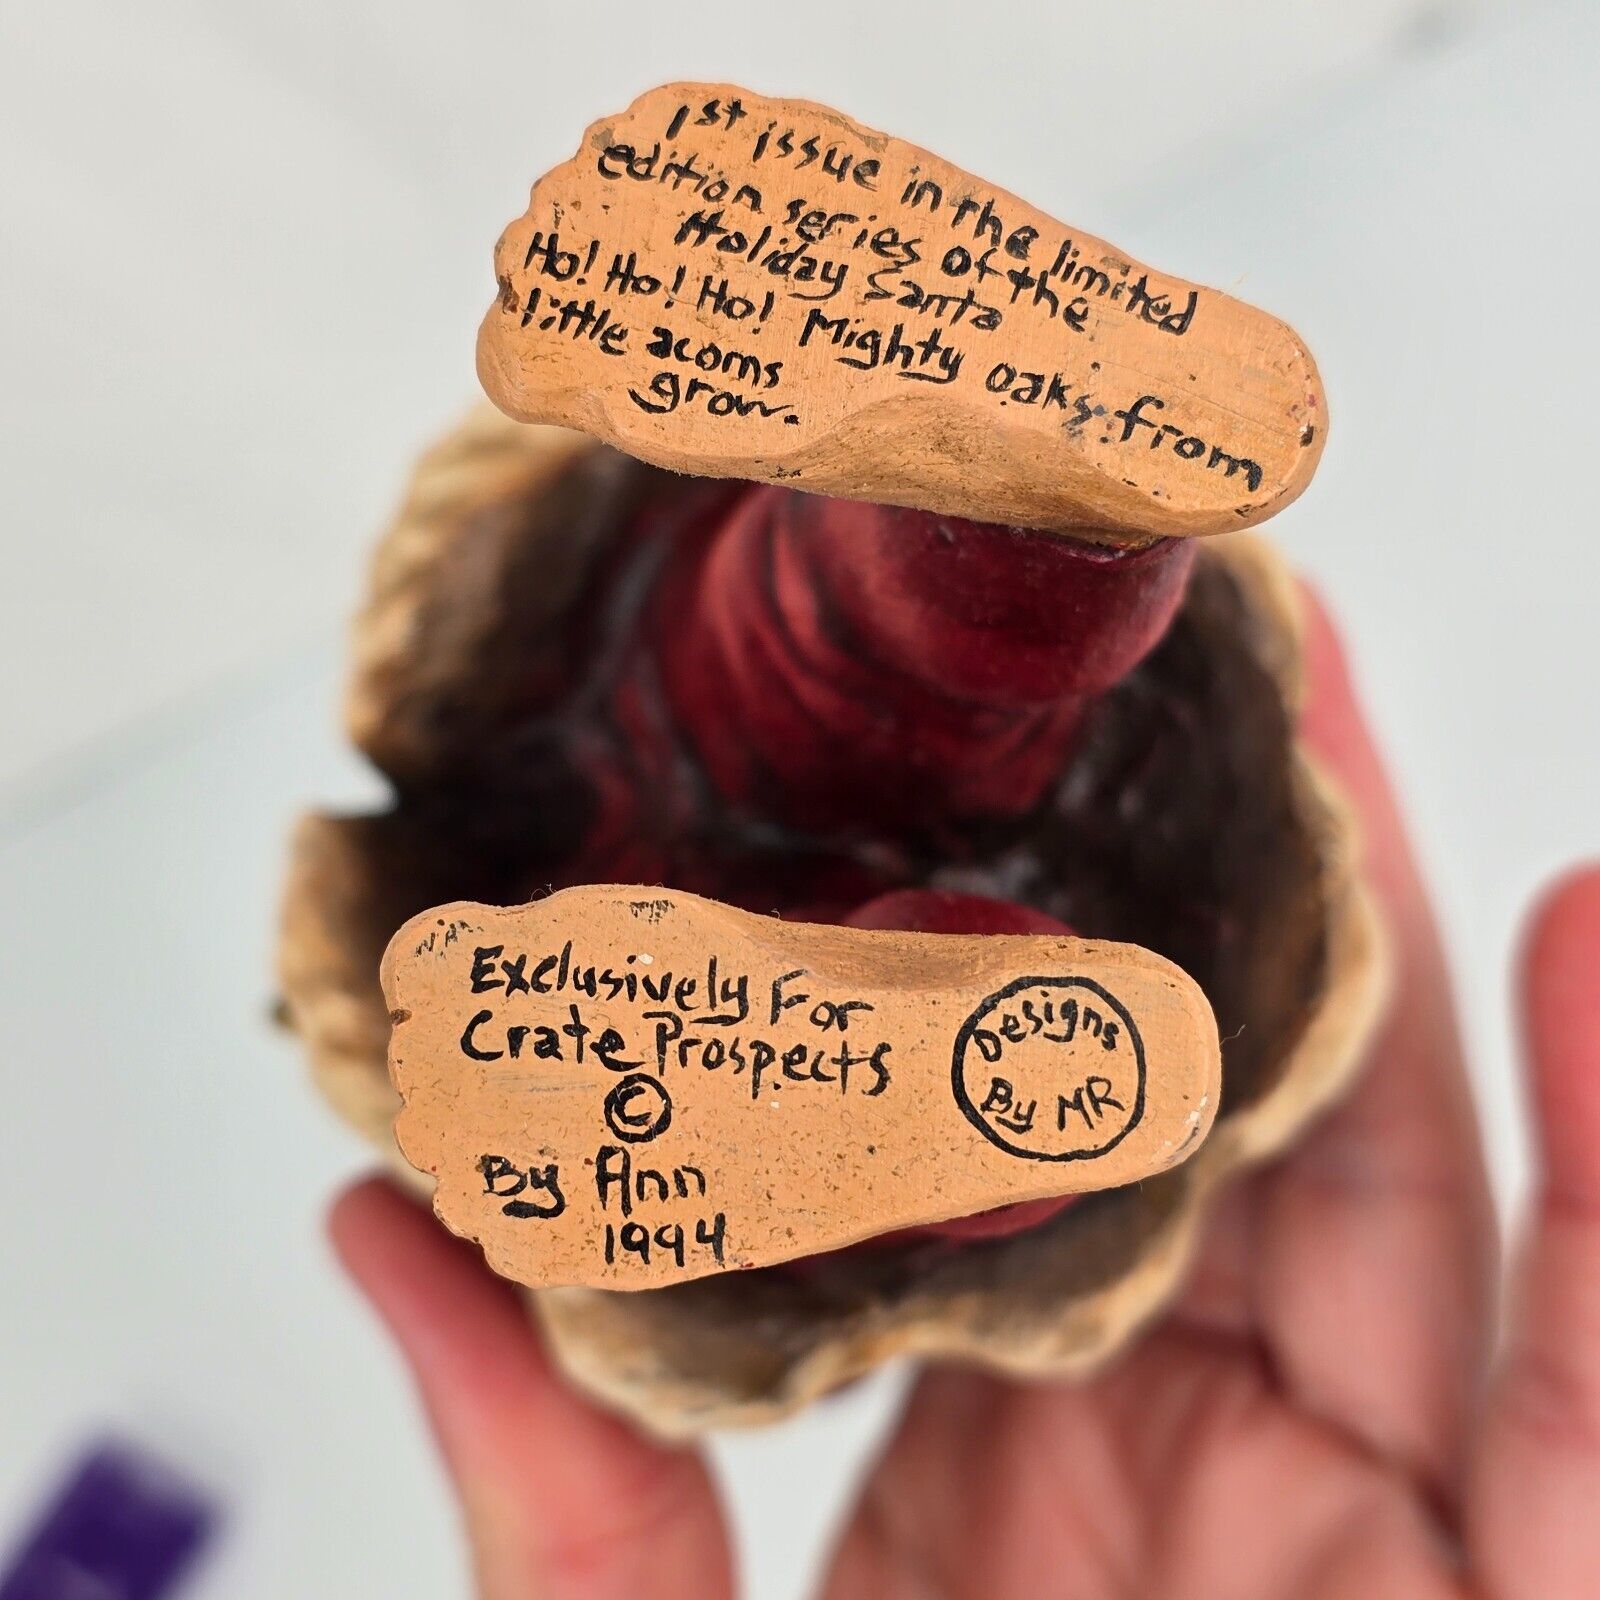 1st issue in the limited
edition series of the
Holiday Santa
Ho! Ho! Ho! Mighty oaks from
little acorns
grow.
Exclusively For
Crate Prospects
©
By Ann
1994
Designs
By MR